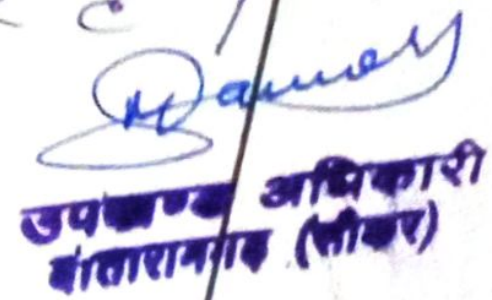 उपखण्ड अधिकारी
दांतारामगढ़ (सीकर)